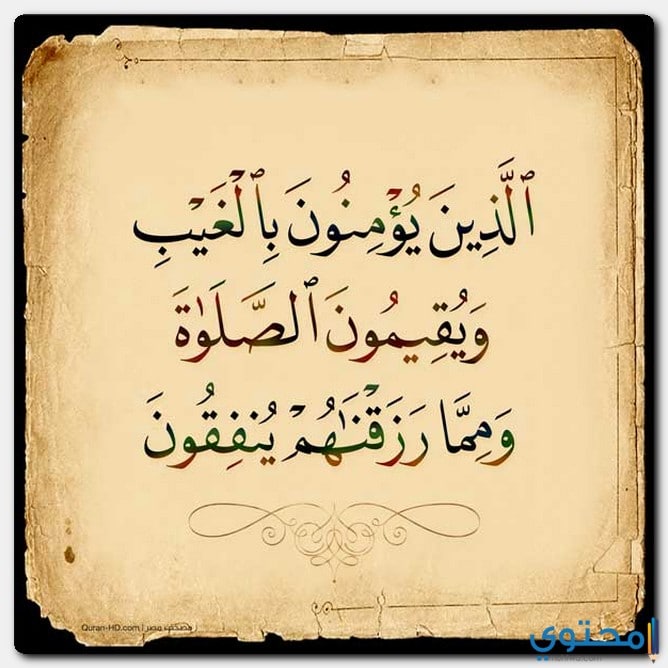 ٱلَّذِينَ يُؤْمِنُونَ بِٱلْغَيْبِ
وَيُقِيمُونَ ٱلصَّلَوٰةَ
وَمِمَّا رَزَقْنَٰهُمْ يُنفِقُونَ
Quran-HD.com | مصحف مصر
محتوي